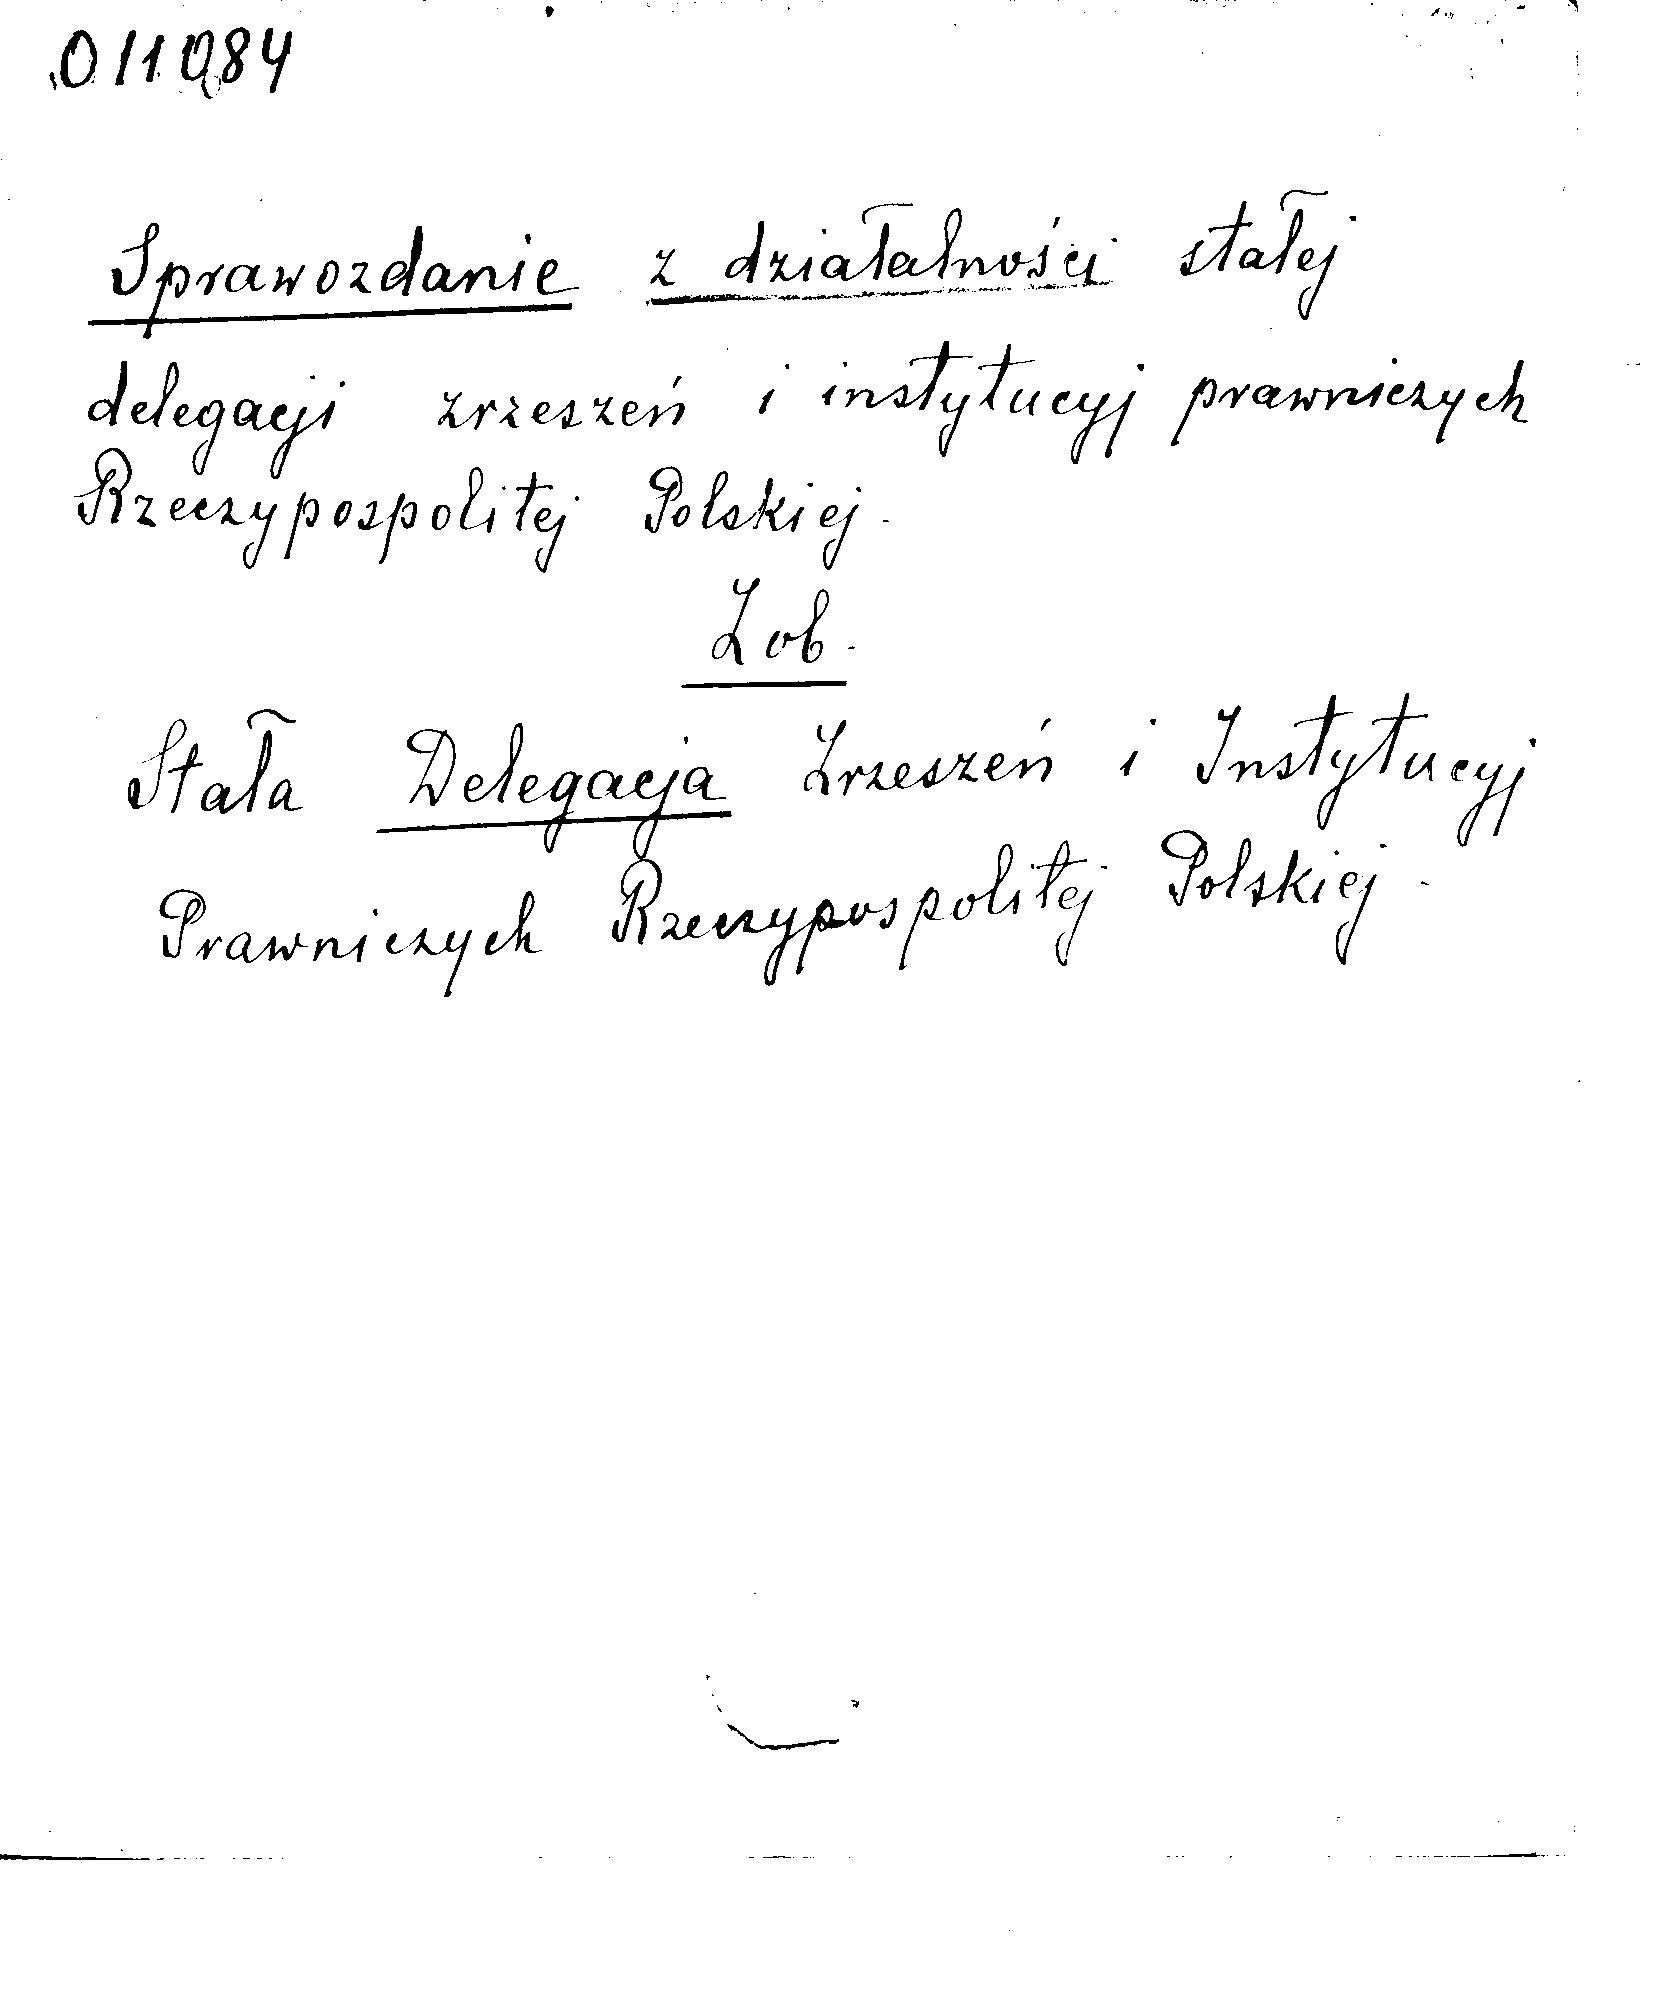 011084
Sprawozdanie z działalności stałej
delegacji zrzeszeń i instytucyj prawniczych
Rzeczypospolitej Polskiej.
Zob.
Stała Delegacja Zrzeszeń i Instytucyj
Prawniczych Rzeczypospolitej Polskiej.